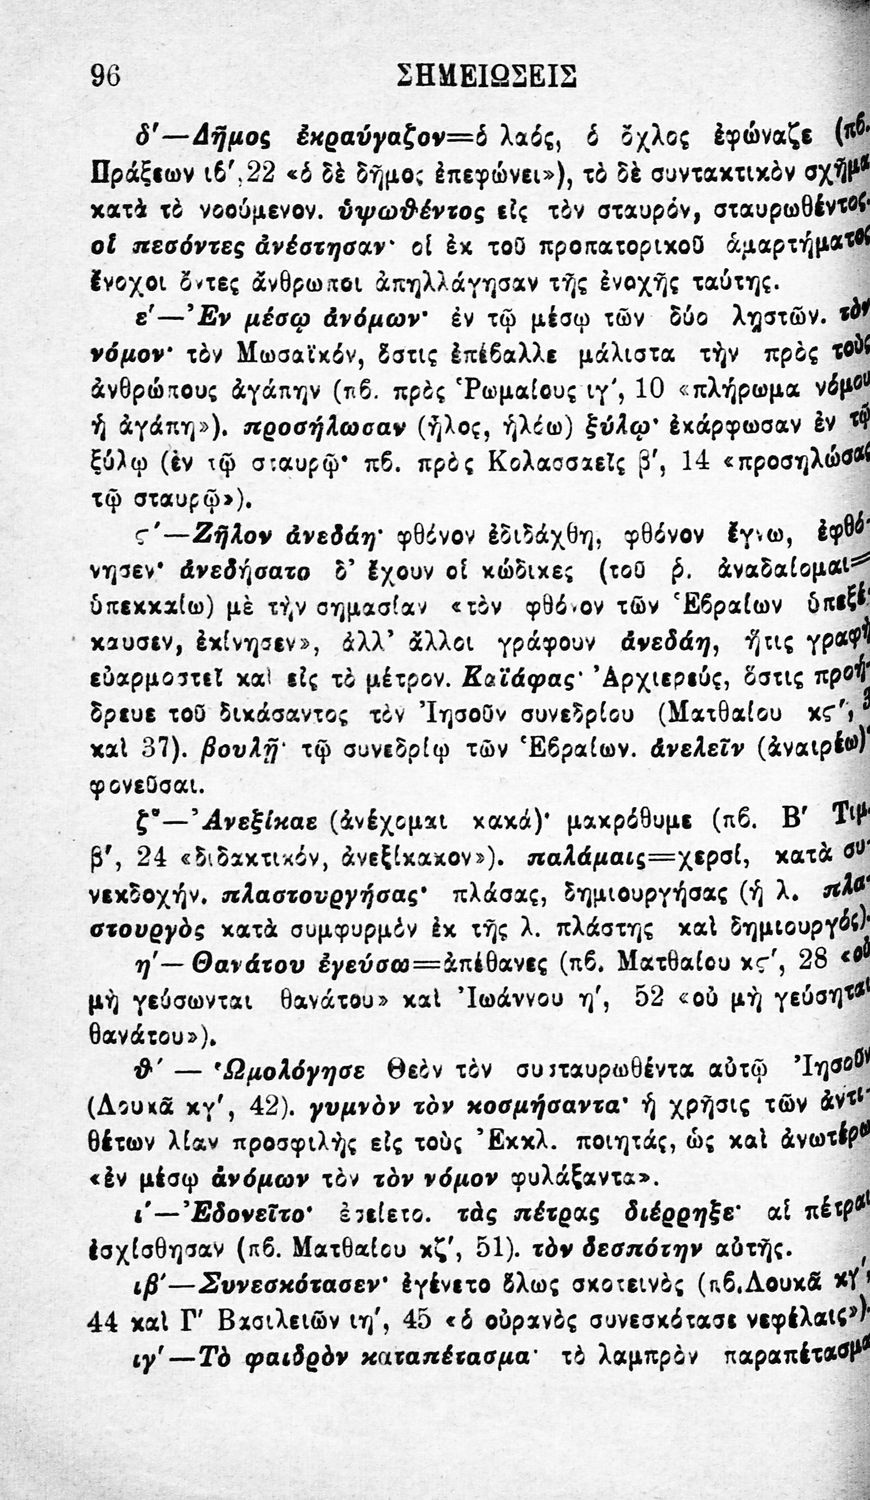 96 ΣΗΜΕΙΩΣΕΙΣ
δ′—Δῆμος ἐκραύγαζον=ὁ λαός, ὁ ὄχλος ἐφώναζε (πβ.
Πράξεων ιβ′, 22 «ὁ δὲ δῆμος ἐπεφώνει»), τὸ δὲ συντακτικὸν σχῆμα
κατὰ τὸ νοούμενον. ὑψωθέντος εἰς τὸν σταυρόν, σταυρωθέντος·
οἱ πεσόντες ἀνέστησαν· οἱ ἐκ τοῦ προπατορικοῦ ἁμαρτήματος
ἔνοχοι ὄντες ἄνθρωποι ἀπηλλάγησαν τῆς ἐνοχῆς ταύτης.
ε′—Ἐν μέσῳ ἀνόμων· ἐν τῷ μέσῳ τῶν δύο λῃστῶν. τὸν
νόμον· τὸν Μωσαϊκόν, ὅστις ἐπέβαλλε μάλιστα τὴν πρὸς τοὺς
ἀνθρώπους ἀγάπην (πβ. πρὸς Ῥωμαίους ιγ′, 10 «πλήρωμα νόμου
ἡ ἀγάπη»). προσήλωσαν (ἧλος, ἡλόω) ξύλῳ· ἐκάρφωσαν ἐν τῷ
ξύλῳ (ἐν τῷ σταυρῷ· πβ. πρὸς Κολασσαεῖς β′, 14 «προσηλώσας
τῷ σταυρῷ»).
ς′—Ζῆλον ἀνεδάη· φθόνον ἐδιδάχθη, φθόνον ἔγνω, ἐφθό-
νησεν· ἀνεδήσατο δ’ ἔχουν οἱ κώδικες (τοῦ ῥ. ἀναδαίομαι=
ὑπεκκαίω) μὲ τὴν σημασίαν «τὸν φθόνον τῶν Ἑβραίων ὑπεξέ-
καυσεν, ἐκίνησεν», ἀλλ’ ἄλλοι γράφουν ἀνεδάη, ἥτις γραφὴ
εὐαρμοστεῖ καὶ εἰς τὸ μέτρον. Καϊάφας· Ἀρχιερεύς, ὅστις προή-
δρευε τοῦ δικάσαντος τὸν Ἰησοῦν συνεδρίου (Ματθαίου κς′, 3
καὶ 37). βουλῇ· τῷ συνεδρίῳ τῶν Ἑβραίων. ἀνελεῖν (ἀναιρέω)·
φονεῦσαι.
ζ′—Ἀνεξίκαε (ἀνέχομαι κακά)· μακρόθυμε (πβ. Β′ Τιμ.
β′, 24 «διδακτικόν, ἀνεξίκακον»). παλάμαις=χερσί, κατὰ συ-
νεκδοχήν. πλαστουργήσας· πλάσας, δημιουργήσας (ἡ λ. πλα-
στουργὸς κατὰ συμφυρμὸν ἐκ τῆς λ. πλάστης καὶ δημιουργός)·
η′—Θανάτου ἐγεύσω=ἀπέθανες (πβ. Ματθαίου κς′, 28 «οὐ
μὴ γεύσωνται θανάτου» καὶ Ἰωάννου η′, 52 «οὐ μὴ γεύσηται
θανάτου»).
θ′ — Ὡμολόγησε Θεὸν τὸν συσταυρωθέντα αὐτῷ Ἰησοῦν
(Λουκᾶ κγ′, 42). γυμνὸν τὸν κοσμήσαντα· ἡ χρῆσις τῶν ἀντι-
θέτων λίαν προσφιλὴς εἰς τοὺς Ἐκκλ. ποιητάς, ὡς καὶ ἀνωτέρω
«ἐν μέσῳ ἀνόμων τὸν τὸν νόμον φυλάξαντα».
ι′—Ἐδονεῖτο· ἐσείετο. τὰς πέτρας διέρρηξε· αἱ πέτραι
ἐσχίσθησαν (πβ. Ματθαίου κζ′, 51). τὸν δεσπότην αὐτῆς.
ιβ′—Συνεσκότασεν· ἐγένετο ὅλως σκοτεινὸς (πβ. Λουκᾶ κγ′,
44 καὶ Γ′ Βασιλειῶν ιη′, 45 «ὁ οὐρανὸς συνεσκότασε νεφέλαις»)·
ιγ′—Τὸ φαιδρὸν καταπέτασμα· τὸ λαμπρὸν παραπέτασμα